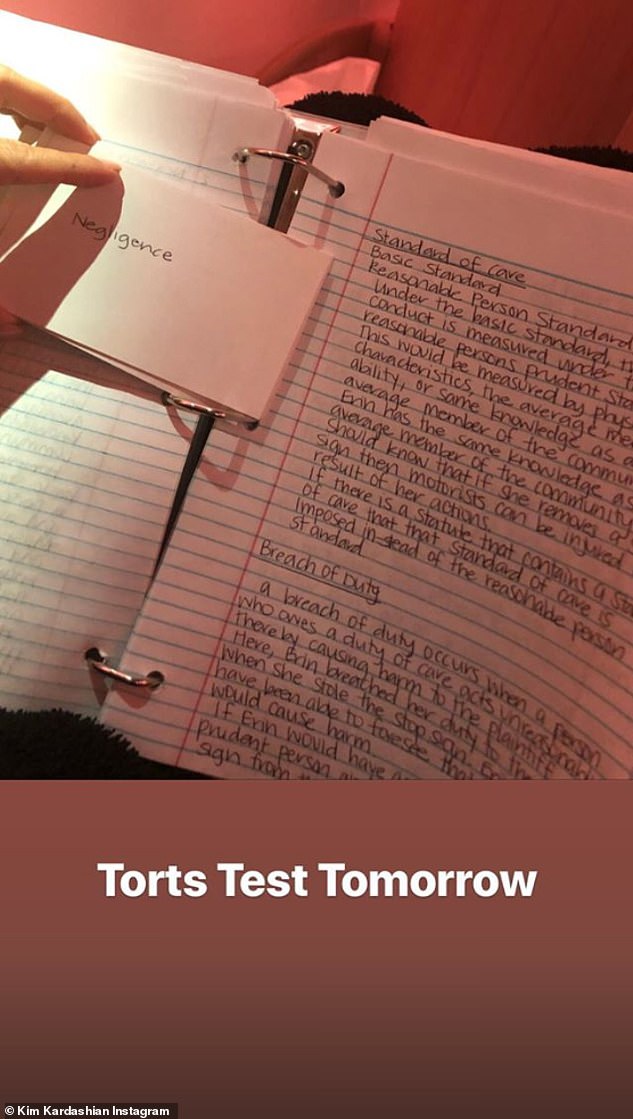 Negligence
Standard of care
Basic Standard
Reasonable Person Standard
Under the basic standard, th
conduct is measured under t
reasonable persons prudent sta
This would be measured by phys
characteristics, the average me
ability, or same knowledge as a
average member of the commun
Erin has the same knowledge as
average member of the community
should know that if she removes a
sign then motorists can be injured
result of her actions.
If there is a statute that contains a sta
of care that that standard of care is
imposed instead of the reasonable person
standard
Breach of Duty
a breach of duty occurs when a person
who owes a duty of care acts unreasonabl
thereby causing harm to the plaintiff
Here, Erin breached her duty to the
when she stole the stop sign. Er
have been able to foresee that
would cause harm
If Erin would have a
prudent person
sign from
Torts Test Tomorrow
© Kim Kardashian Instagram